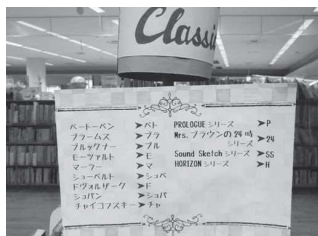 Classi
ベートーベン ➤ベト
ブラームス ➤ブラ
ブルックナー ➤ブル
モーツァルト ➤モ
マーラー ➤マ
シューベルト ➤シュベ
ドヴォルザーク ➤ド
ショパン ➤ショパ
チャイコフスキー ➤チャ
PROLOGUE シリーズ ➤P
Mrs. ブラウンの24時
シリーズ ➤24
Sound Sketch シリーズ ➤SS
HORIZON シリーズ ➤H